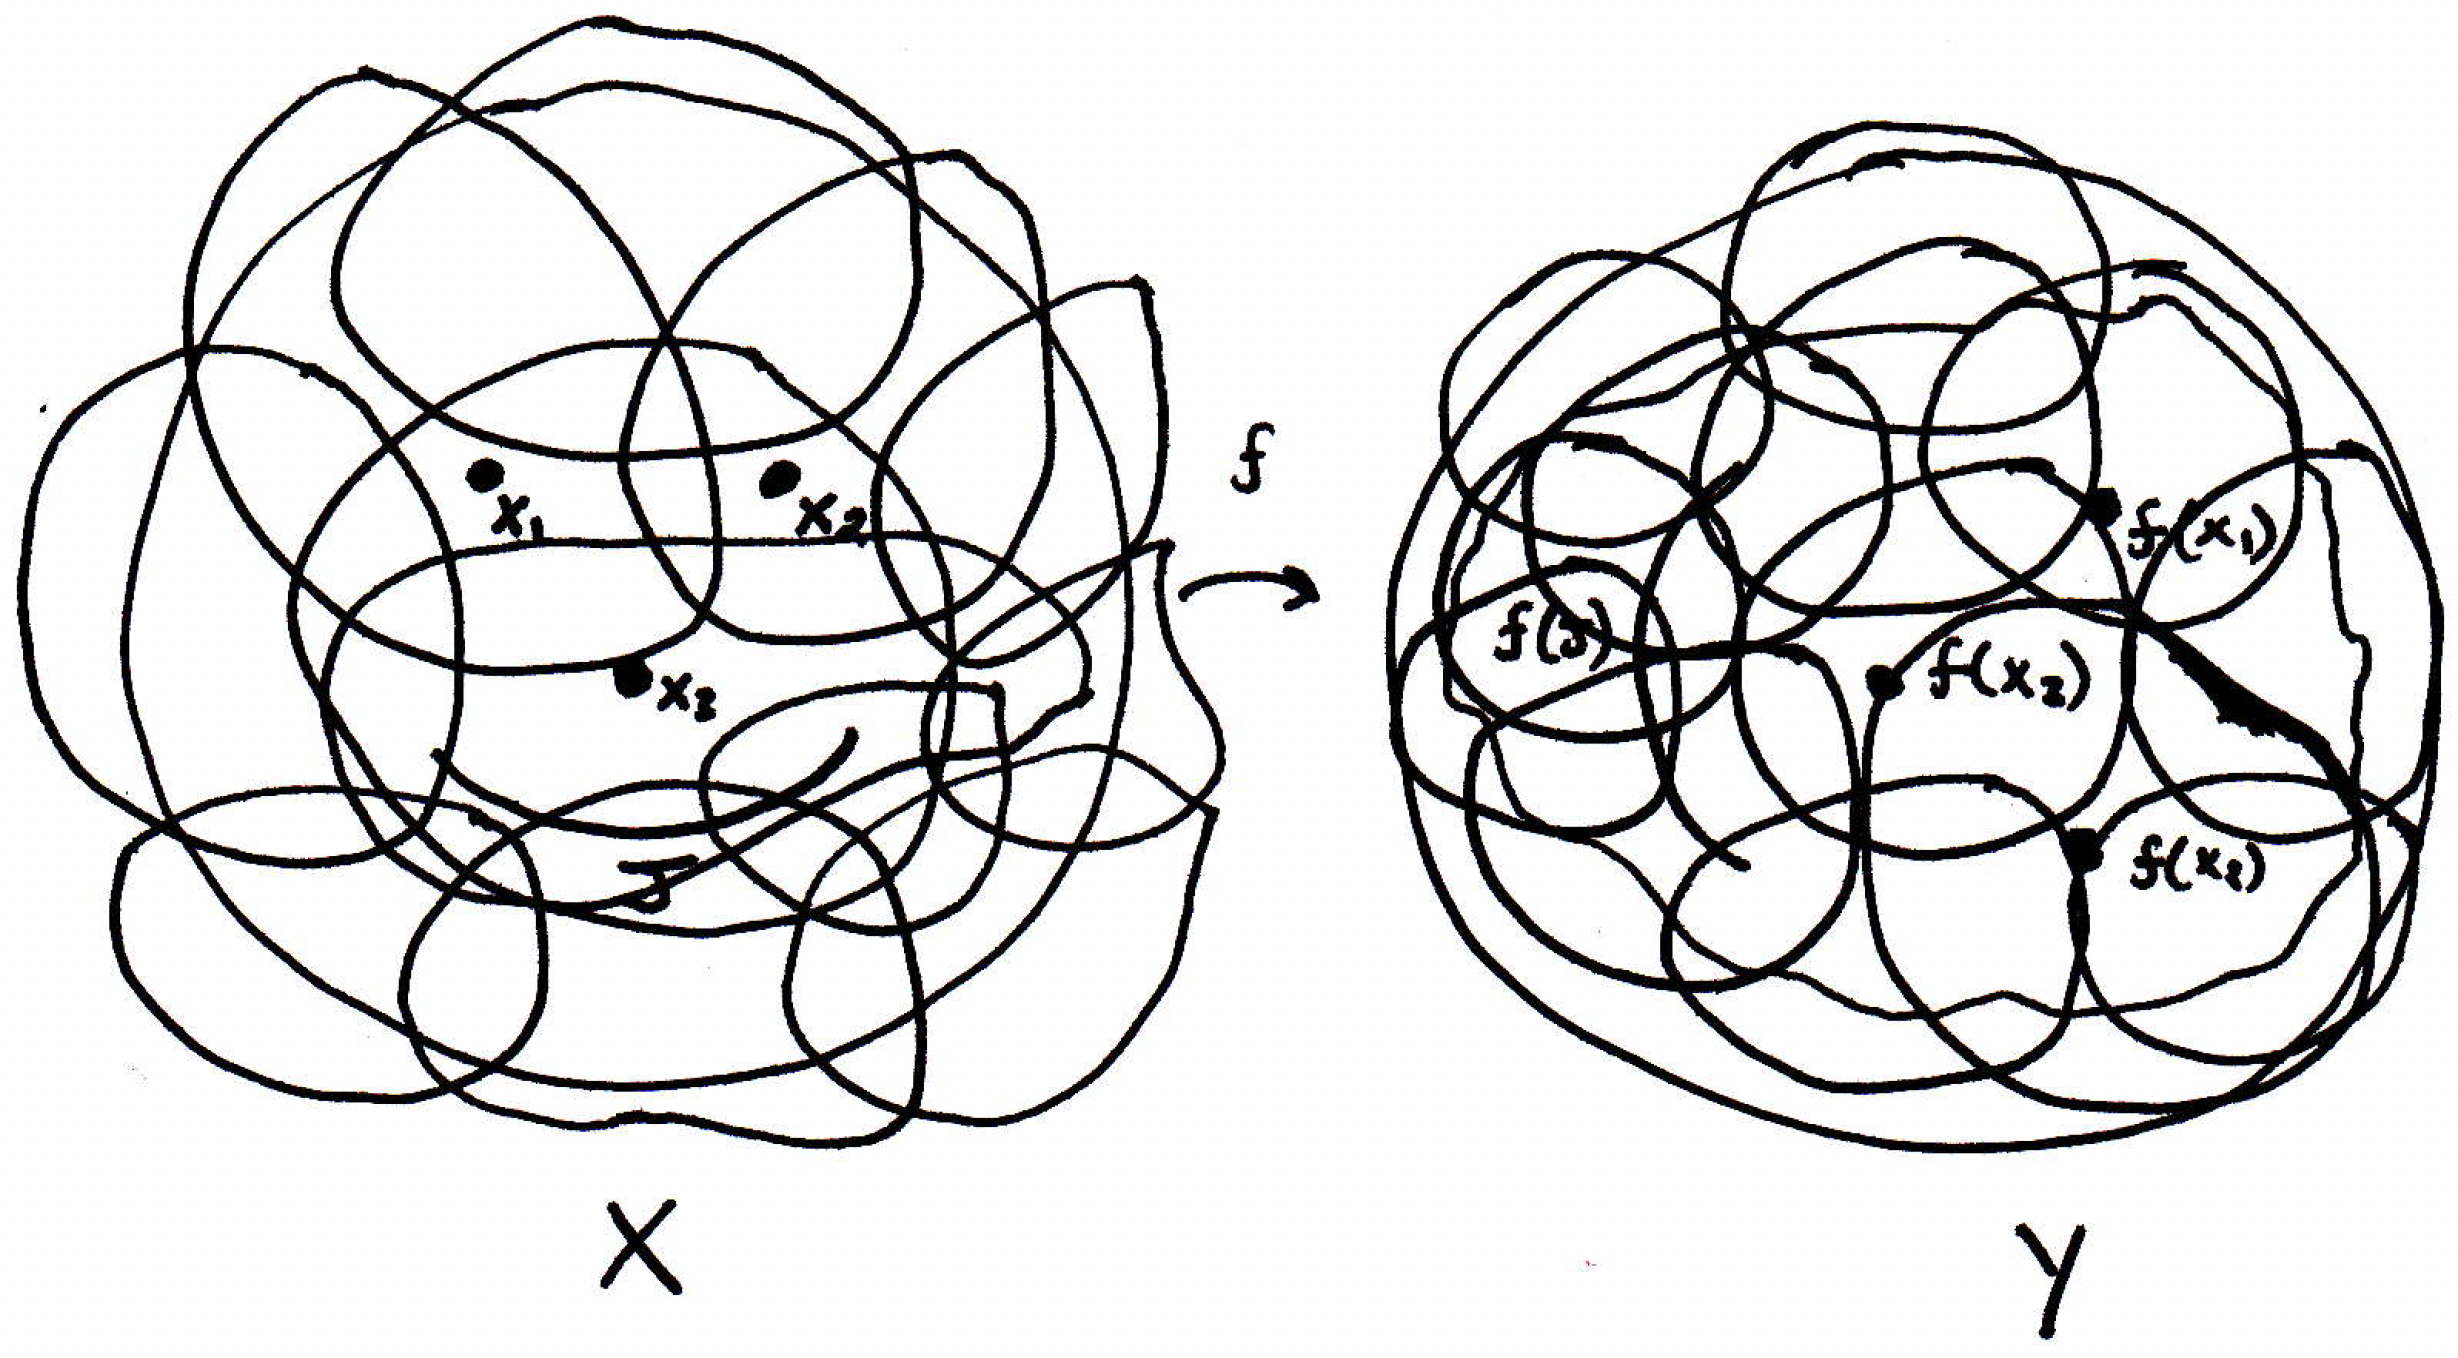 x₁
x₂
x₃
J
X
f
f(x₁)
f(J)
f(x₃)
f(x₂)
Y